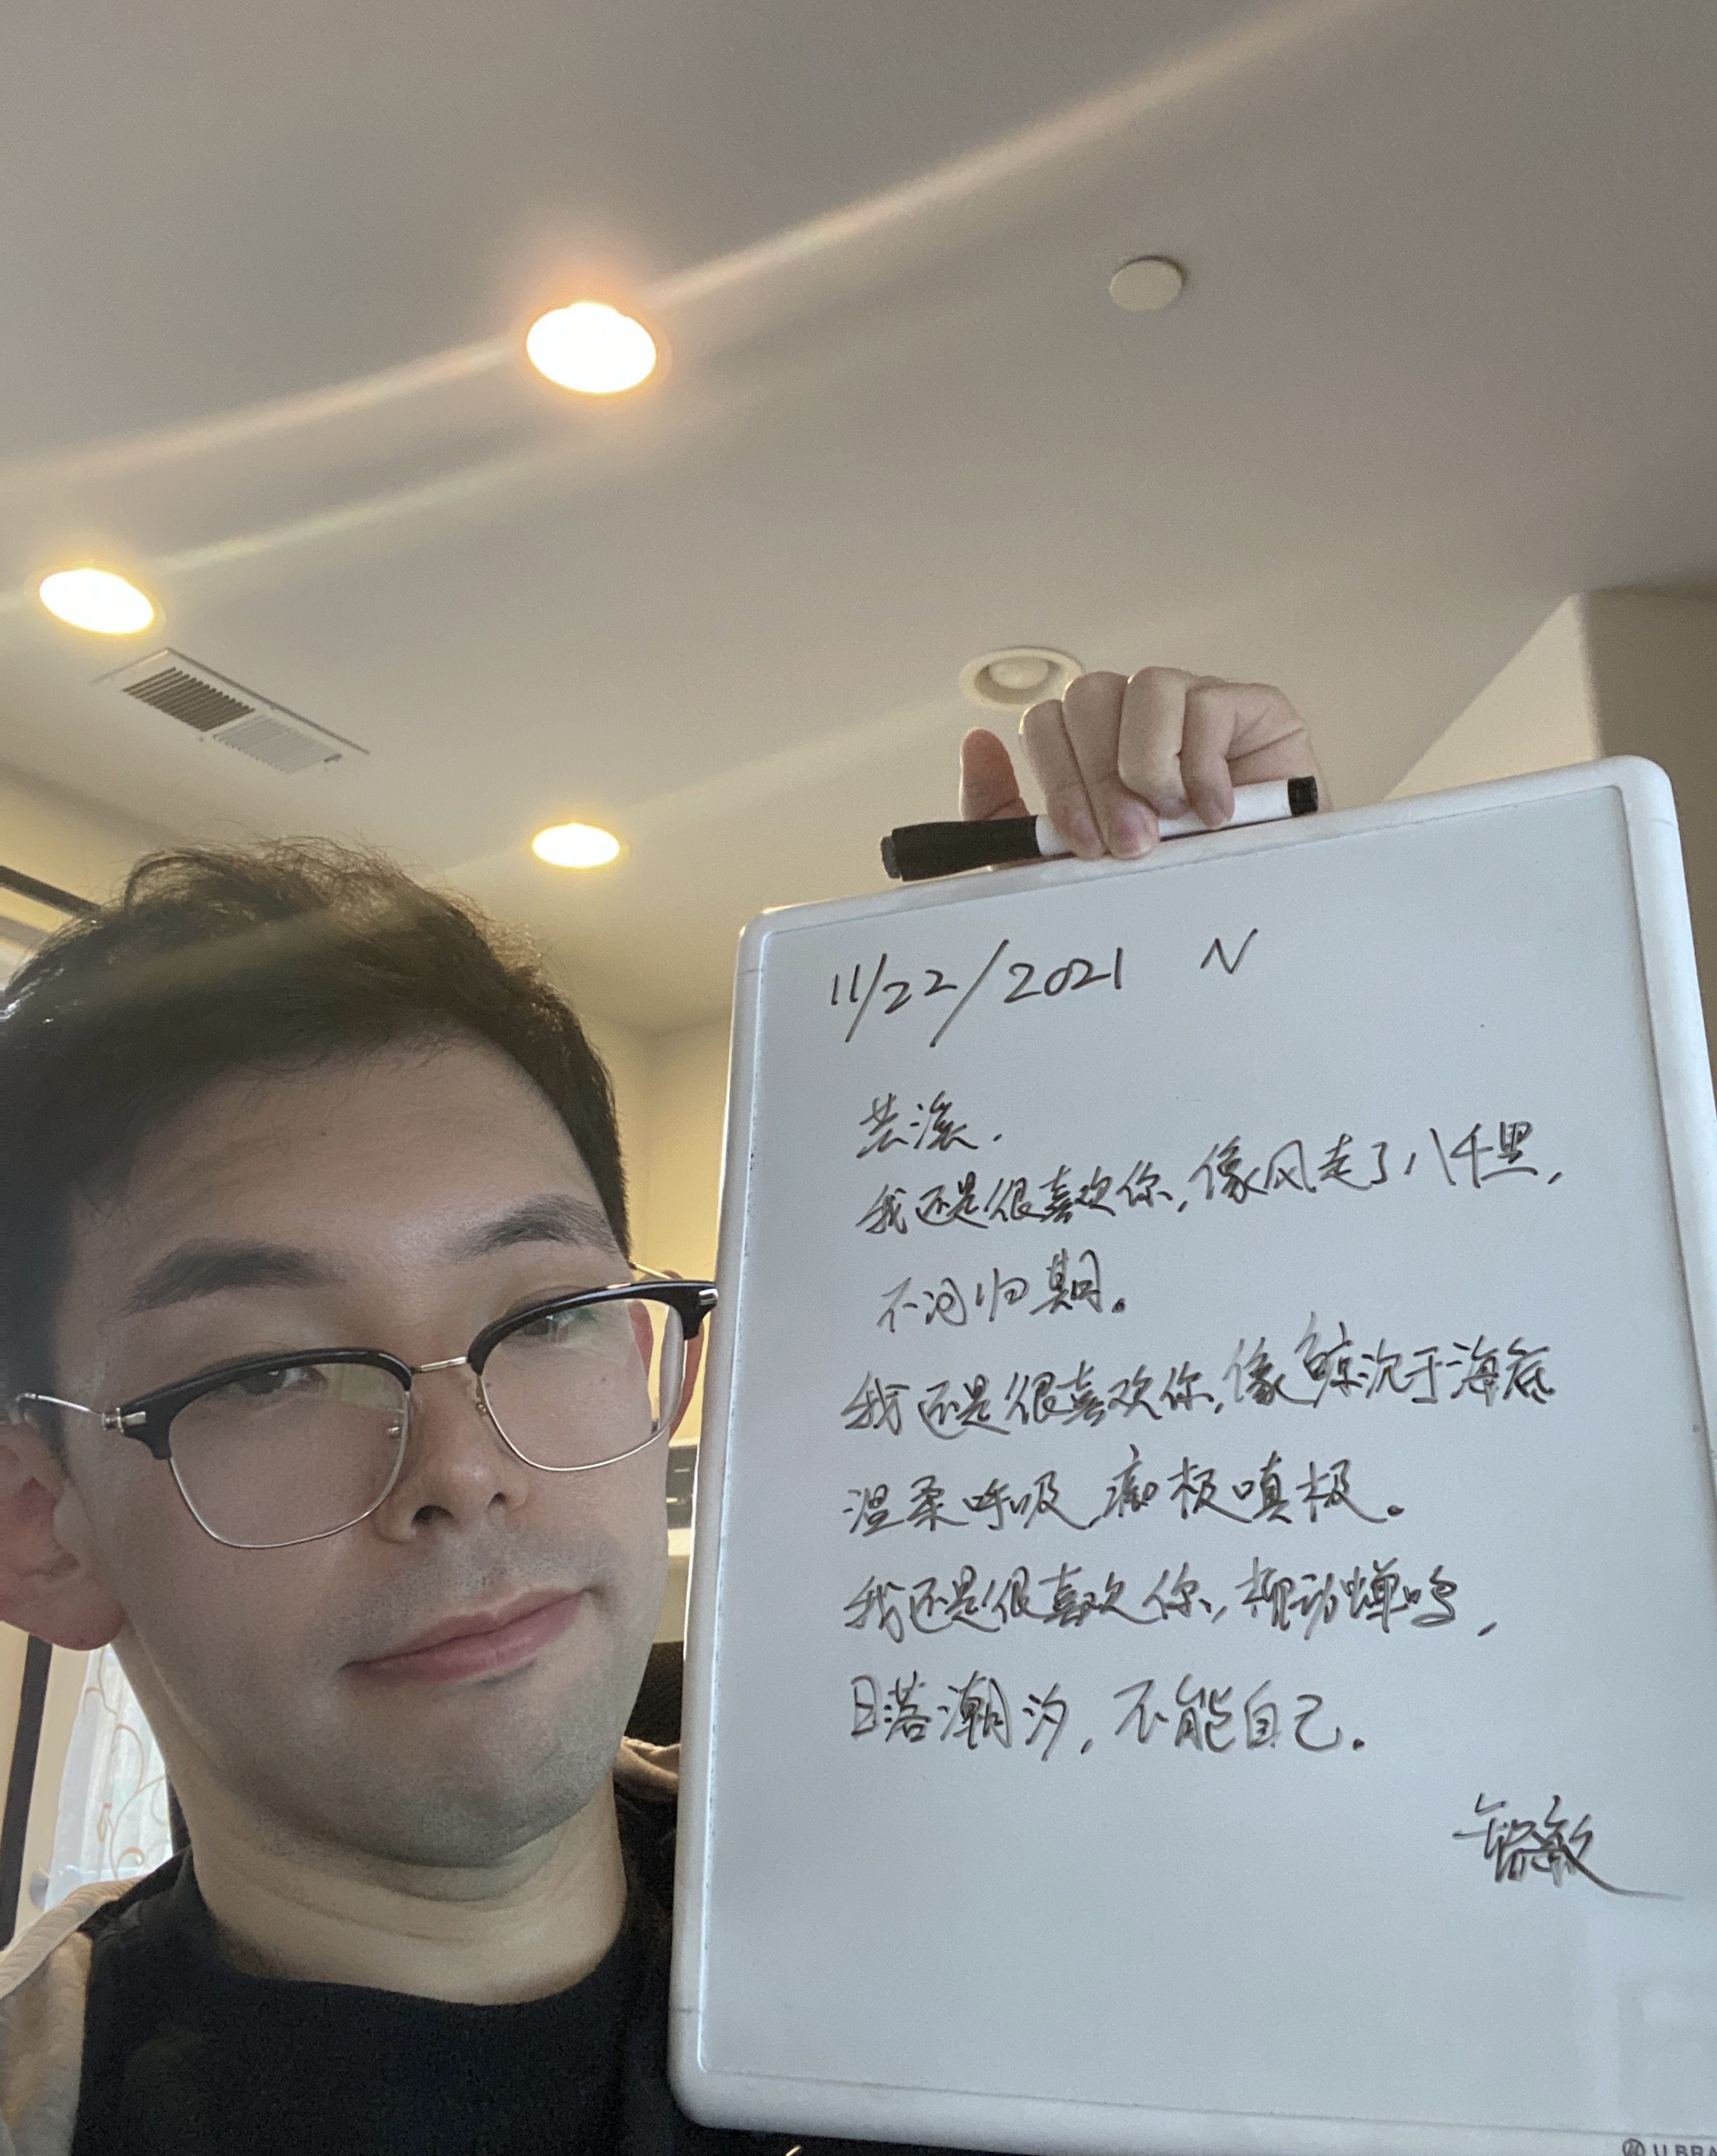 11/22/2021 N
芸溪,
我还是很喜欢你,像风走了八千里,
不问归期。
我还是很喜欢你,像鲸沉于海底
温柔呼吸,痴极嗔极。
我还是很喜欢你,柳动蝉鸣,
日落潮汐,不能自己.
智敏
U BRA